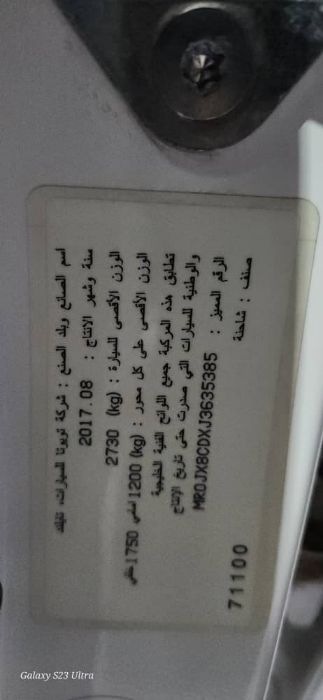 اسم الصانع وبلد الصنع : شركة تويوتا للسيارات، تايلاند
سنة وشهر الانتاج : 2017.08
الوزن الأقصى للسيارة : (kg) 2730
الوزن الأقصى على كل محور : (kg) 1200 امامي 1750 خلفي
تطابق هذه المركبة جميع اللوائح الفنية الخليجية
والوطنية للسيارات التي صدرت حتى تاريخ الانتاج
الرقم المميز : MR0JX8CDXJ3635385
صنف : شاحنة
71100
Galaxy S23 Ultra